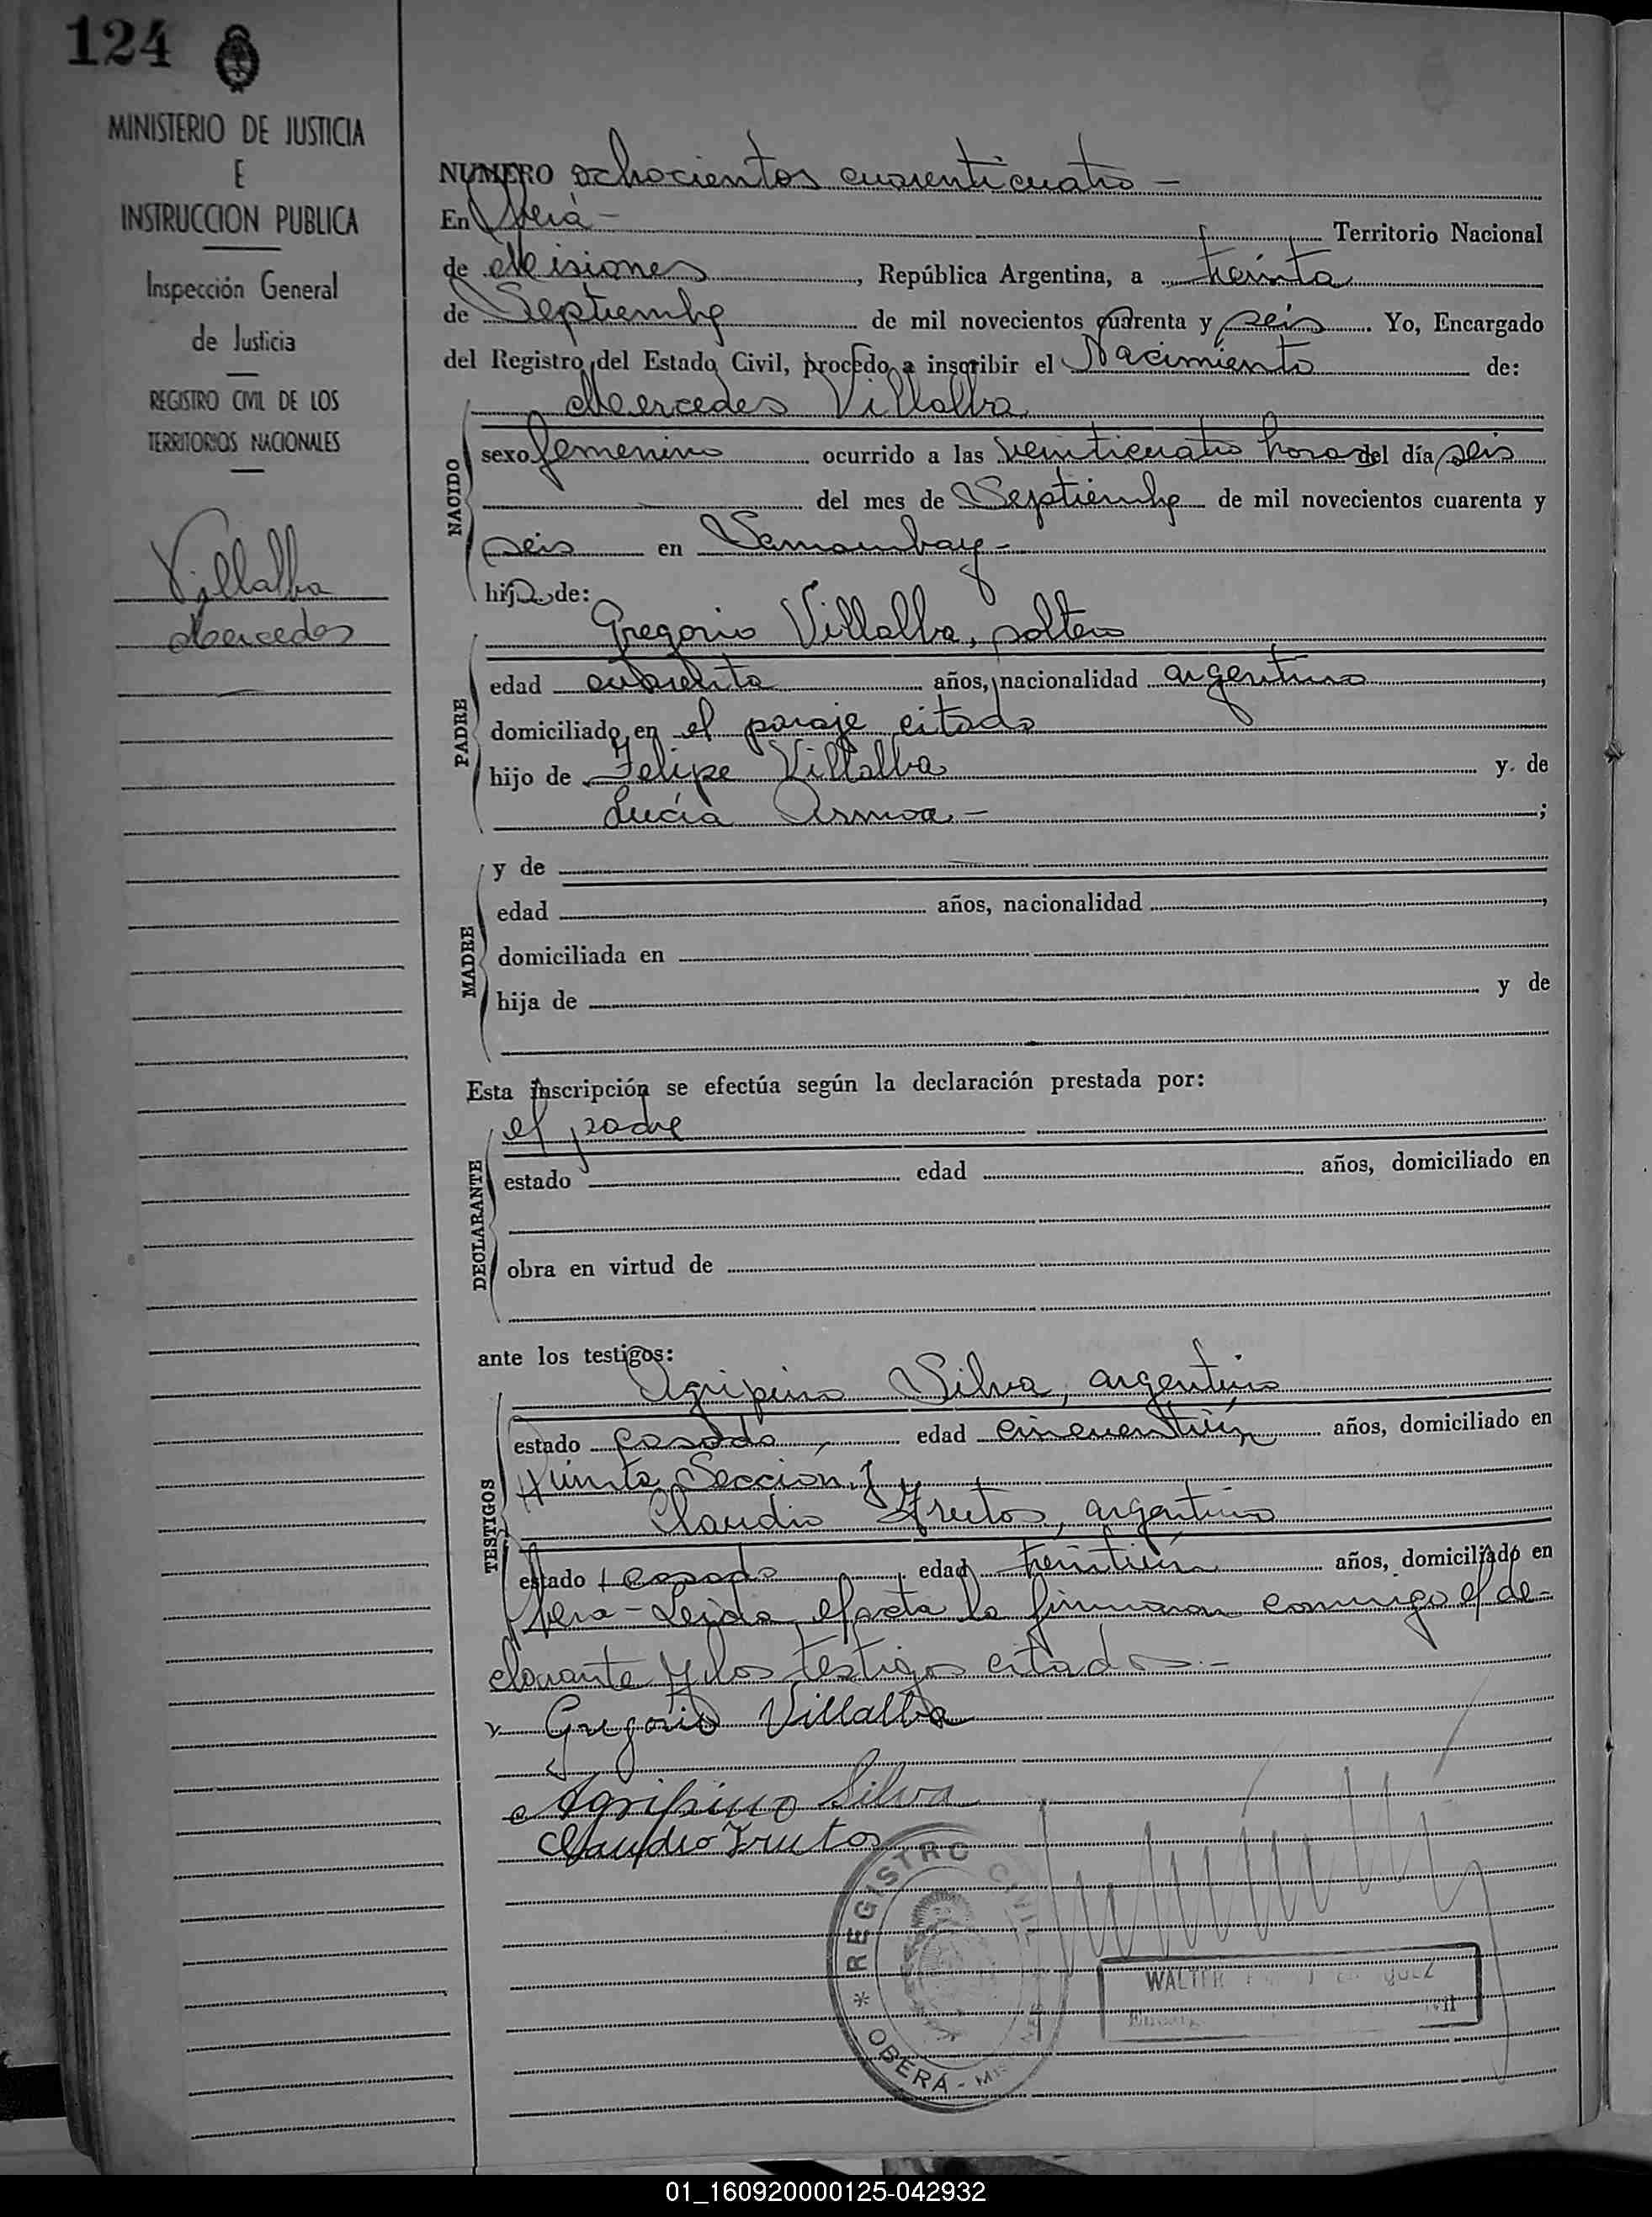 124
MINISTERIO DE JUSTICIA
E
INSTRUCCION PUBLICA
Inspección General
de Justicia
REGISTRO CIVIL DE LOS
TERRITORIOS NACIONALES
Villalba
Mercedes
NUMERO ochocientos cuarenticuatro -
En Oberá - Territorio Nacional
de Misiones, República Argentina, a treinta
de Septiembre de mil novecientos cuarenta y seis. Yo, Encargado
del Registro del Estado Civil, procedo a inscribir el Nacimiento de:
Mercedes Villalba
NACIDO
sexo femenino ocurrido a las veinticuatro horas del día seis
del mes de Septiembre de mil novecientos cuarenta y
seis en Samambay -
hija de:
PADRE
Gregorio Villalba, soltero
edad cuarenta años, nacionalidad argentino,
domiciliado en el paraje citado
hijo de Felipe Villalba y de
Lucía Armoa - ;
MADRE
y de
edad años, nacionalidad ,
domiciliada en
hija de y de
Esta inscripción se efectúa según la declaración prestada por:
DECLARANTE
el padre
estado edad años, domiciliado en
obra en virtud de
ante los testigos:
TESTIGOS
Agripino Silva, argentino
estado casado, edad cincuentiún años, domiciliado en
Quinta Sección y
Claudio Frutos, argentino
estado casado edad treintiún años, domiciliado en
Oberá - Leida el acta la firmaron conmigo el de-
clarante y los testigos citados. -
Gregorio Villalba
Agripino Silva
Claudio Frutos
* REGISTRO CIVIL
OBERÁ - MISIONES
WALTER